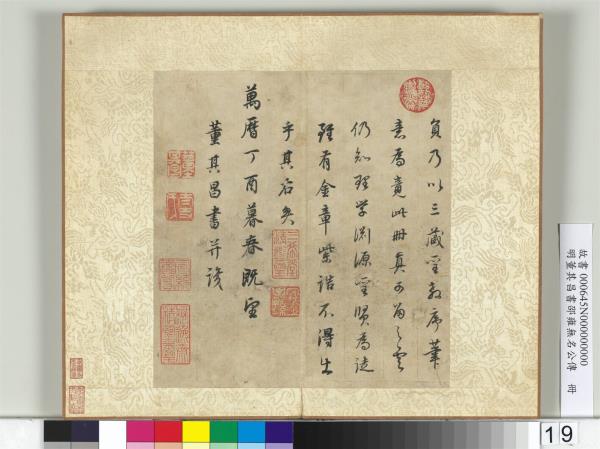 負乃以三藏聖教序筆
意為竟此冊真可為之云
仍知理學淵源聖賢為徒
雖有金章紫誥不得出
乎其右矣
萬曆丁酉暮春既望
董其昌書并識
故書000645N000000000
明董其昌書邵雍無名公傳 冊
19